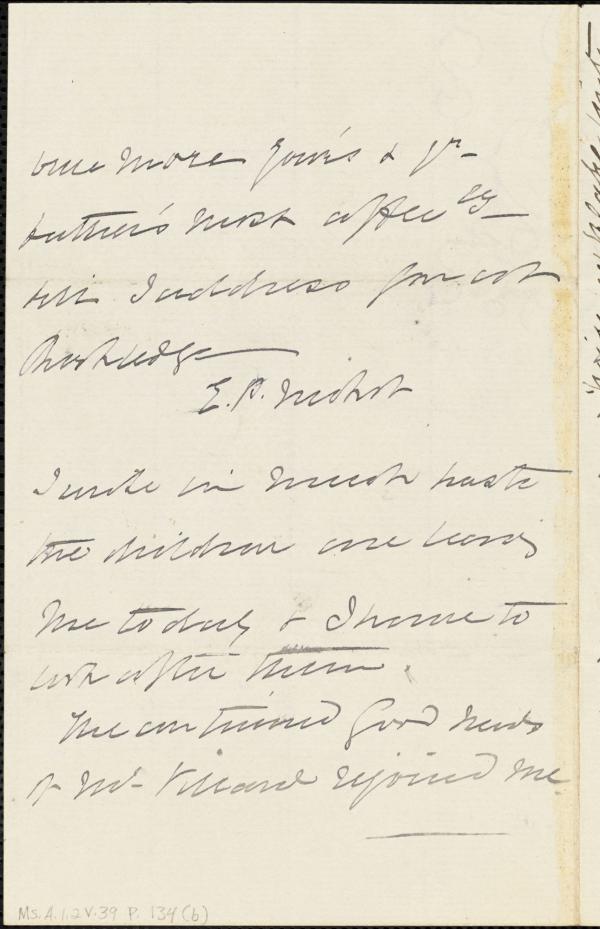 once more yours & yr
father's most affec^ly
till I address you at
E. P. Nichol
I write in much haste
the children are leaving
me today & I have to
look after them.
The continued good news
of Mr Villard rejoiced me
Ms. A. 1. 2 V. 39 P. 134 (b)